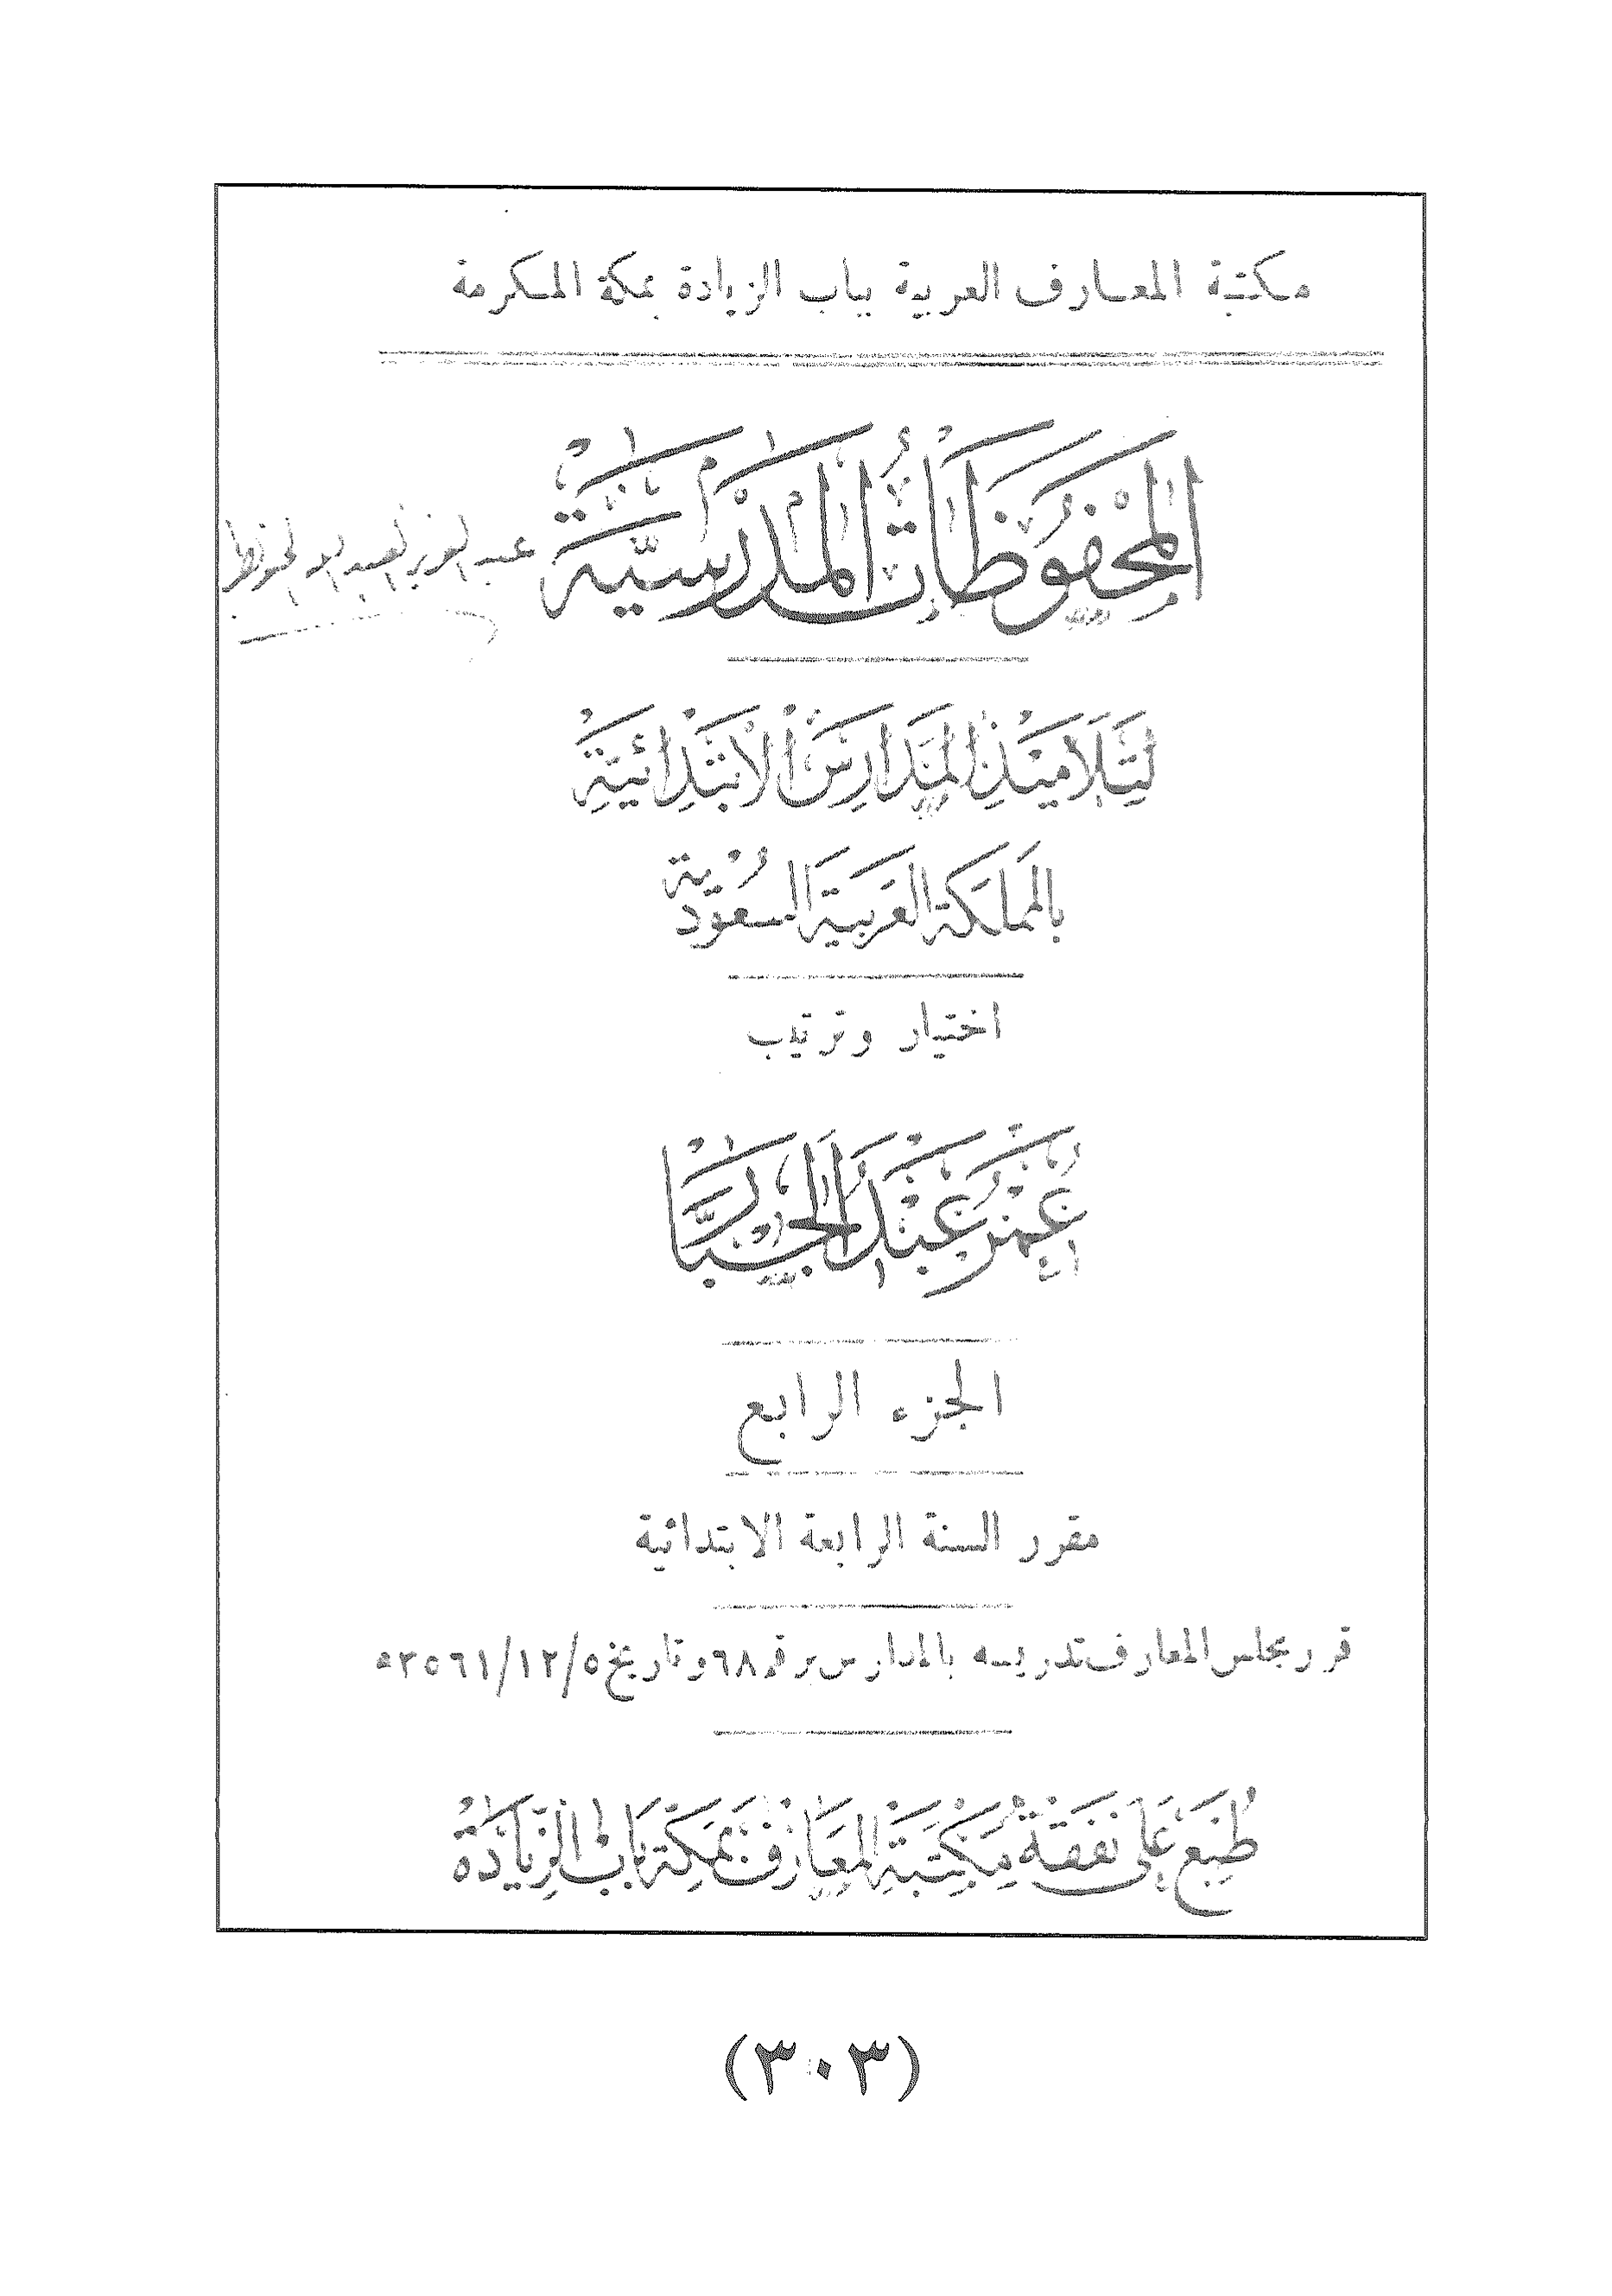 مكتبة المعارف العربية بباب الزيادة بمكة المكرمة
المحفوظات المدرسية
لتلاميذ المدارس الابتدائية
بالمملكة العربية السعودية
اختيار وترتيب
عمر عبد الجبار
الجزء الرابع
مقرر السنة الرابعة الابتدائية
قرر مجلس المعارف تدريسه بالمدارس برقم ٦٨ وتاريخ
طُبع على نفقة مكتبة المعارف بمكة باب الزيادة
(٣٠٣)